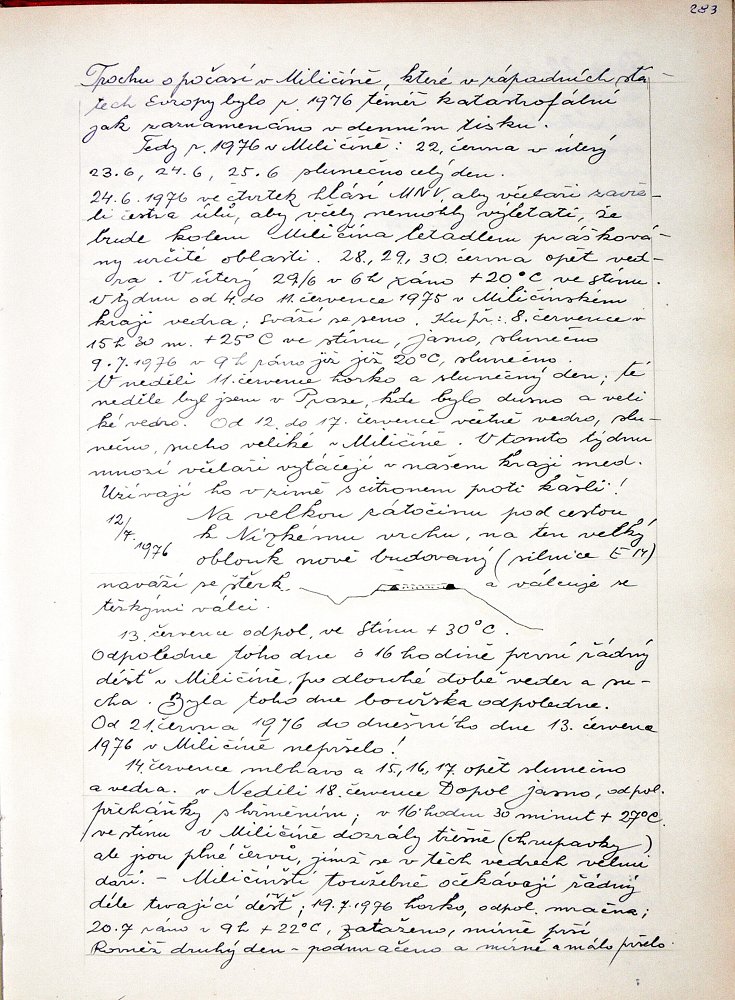 283
Trochu o počasí v Miličíně, které v západních stá-
tech Evropy bylo r. 1976 téměř katastrofální
jak zaznamenáno v denním tisku.
Tedy r. 1976 v Miličíně: 22. června v úterý
23.6, 24.6, 25.6 slunečno celý den.
24.6.1976 ve čtvrtek hlásí MNV, aby včelaři zavře-
li čestna úlů, aby včely nemohly výletati, že
bude kolem Miličína letadlem práškova-
ny určité oblasti. 28., 29, 30. června opět ved-
ra. V úterý 29/6 v 6h ráno +20°C ve stínu.
V týdnu od 4. do 11. července 1975 v Miličínském
kraji vedra; sváží se seno. Ku př: 8. července v
15h 30 m. +25°C ve stínu, jasno, slunečno
9.7.1976 v 9h ráno již již 20°C, slunečno.
V neděli 11. července horko a slunečný den; té
neděle byl jsem v Praze, kde bylo dusno a veli
ké vedro. Od 12. do 17. července včetně vedro, slu-
nečno, sucho veliké v Miličíně. V tomto týdnu
mnozí včelaři vytáčejí v našem kraji med.
Užívají ho v zimě s citronem proti kašli!
12/7. 1976 Na velkou zátočinu pod cestou
k Nízkému vrchu, na ten velký
oblouk nově budovaný (silnice E 14)
naváží se štěrk. a válcuje se
těžkými válci.
13. července odpol. ve stínu +30°C.
Odpoledne toho dne o 16 hodině první řádný
déšť v Miličíně po dlouhé době veder a su-
cha. Byla toho dne bouřka odpoledne.
Od 21. června 1976 do dnešního dne 13. července
1976 v Miličíně nepršelo!
14. července mlhavo a 15., 16, 17. opět slunečno
a vedra. v Neděli 18. července Dopol jasno, odpol.
přeháňky s hřměním; v 16 hodin 30 minut +27°C.
ve stínu v Miličíně dozrály třešně (chrupavky)
ale jsou plné červů, jimž se v těch vedrech velmi
daří. - Miličínští toužebně očekávají řádný
déle trvající déšť; 19.7.1976 horko, odpol. mračna;
20.7 ráno v 9h +22°C, zataženo, mírně prší
Rovněž druhý den - podmračeno a mírně a málo pršelo.